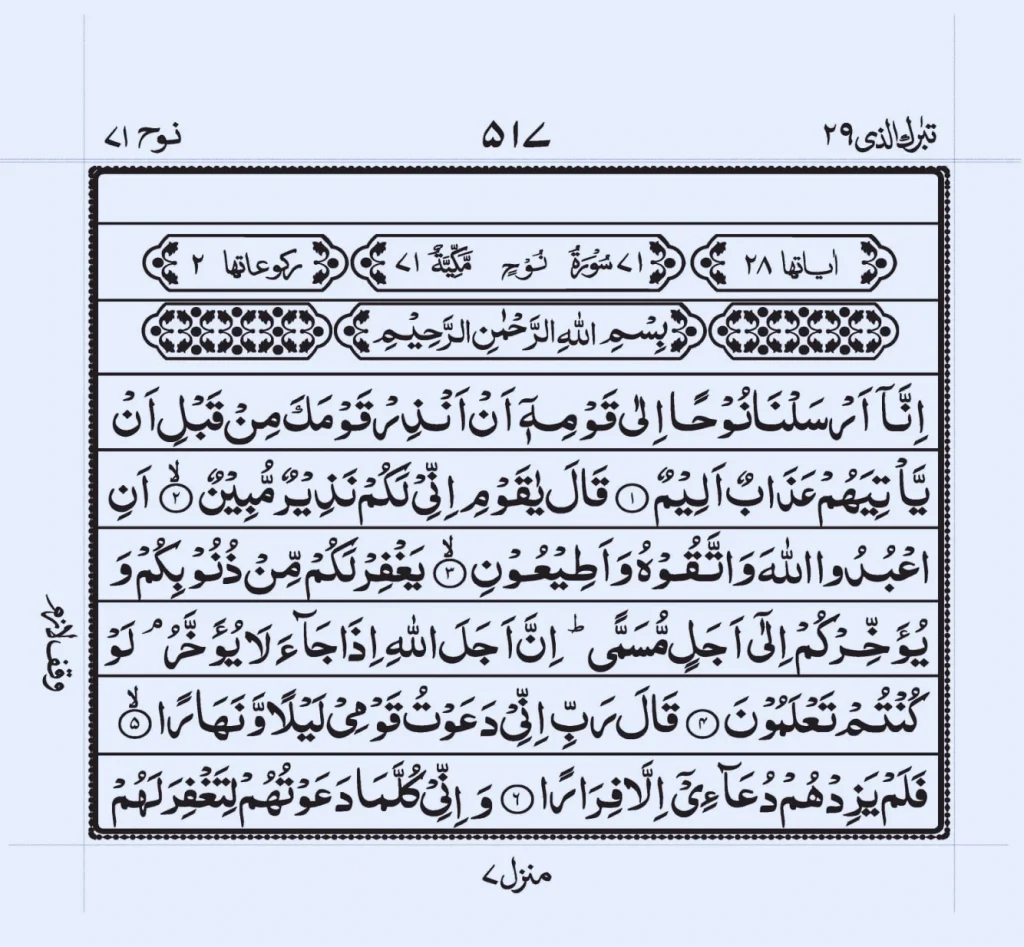 تبٰرك الذی ۲۹ ۵۱۷ نوح ۷۱
اٰیاتھا ۲۸ ۷۱ سُوْرَةُ نُوْحٍ مَّكِّيَّةٌ ۷۱ رکوعاتھا ۲
بِسْمِ اللّٰهِ الرَّحْمٰنِ الرَّحِيْمِ
اِنَّاۤ اَرْسَلْنَا نُوْحًا اِلٰى قَوْمِهٖۤ اَنْ اَنْذِرْ قَوْمَكَ مِنْ قَبْلِ اَنْ
يَّاْتِيَهُمْ عَذَابٌ اَلِيْمٌ ۱ قَالَ يٰقَوْمِ اِنِّىْ لَكُمْ نَذِيْرٌ مُّبِيْنٌ ۙ۲ اَنِ
اعْبُدُوا اللّٰهَ وَاتَّقُوْهُ وَاَطِيْعُوْنِ ۙ۳ يَغْفِرْ لَكُمْ مِّنْ ذُنُوْبِكُمْ وَ
يُؤَخِّرْكُمْ اِلٰۤى اَجَلٍ مُّسَمًّى ؕ اِنَّ اَجَلَ اللّٰهِ اِذَا جَآءَ لَا يُؤَخَّرُ ۘ لَوْ
وقف لازم
كُنْتُمْ تَعْلَمُوْنَ ۴ قَالَ رَبِّ اِنِّىْ دَعَوْتُ قَوْمِىْ لَيْلًا وَّنَهَارًا ۙ۵
فَلَمْ يَزِدْهُمْ دُعَآءِىْۤ اِلَّا فِرَارًا ۶ وَ اِنِّىْ كُلَّمَا دَعَوْتُهُمْ لِتَغْفِرَ لَهُمْ
منزل ۷